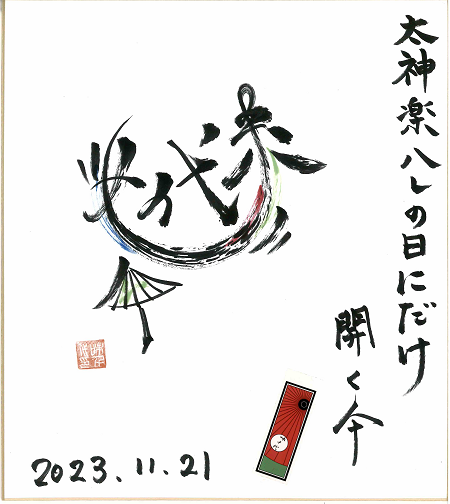 太神楽ハレの日にだけ
開く仐
2023.11.21